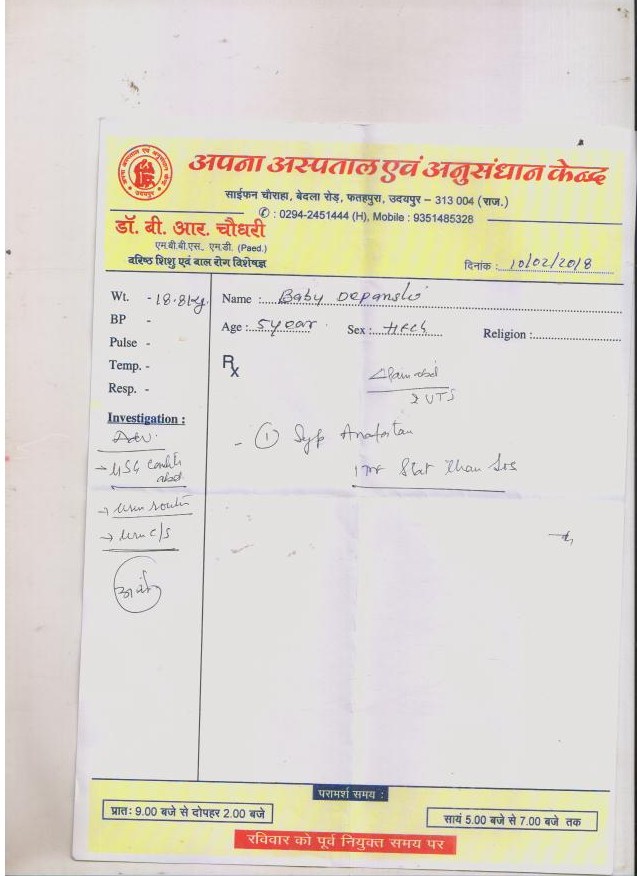 अपना अस्पताल एवं अनुसंधान केन्द्र
उदयपुर
साईफन चौराहा, बेदला रोड़, फतहपुरा, उदयपुर – 313 004 (राज.)
✆ : 0294-2451444 (H), Mobile : 9351485328
डॉ. बी. आर. चौधरी
एम.बी.बी.एस. एम.डी. (Paed.)
वरिष्ठ शिशु एवं बाल रोग विशेषज्ञ
दिनांक : 10/02/2018
Wt. -
BP -
Pulse -
Temp. -
Resp. -
Investigation :
Adv.
→ USG
→ routin
→ C/S
Name : Baby Depanshi
Age : 5 year Sex :
Religion :
Rx
UTS
- ① Syp Anafortan
Stat than SOS
परामर्श समय :
प्रातः 9.00 बजे से दोपहर 2.00 बजे
सायं 5.00 बजे से 7.00 बजे तक
रविवार को पूर्व नियुक्त समय पर